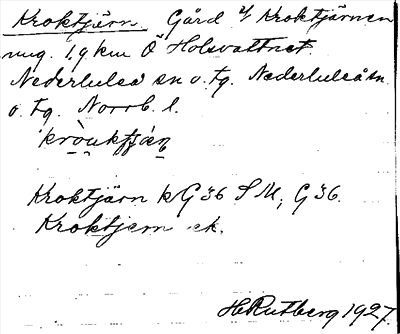 Kroktjärn. Gård v/ Kroktjärnen
ung. 1,9 km Ö Holsvattnet.
Nederluleå sn o. tg. Nederluleå sn
o. tg. Norrb. l.
Kroktjärn kG36 SM, G36.
Kroktjern ek.
H. Rutberg 1927.